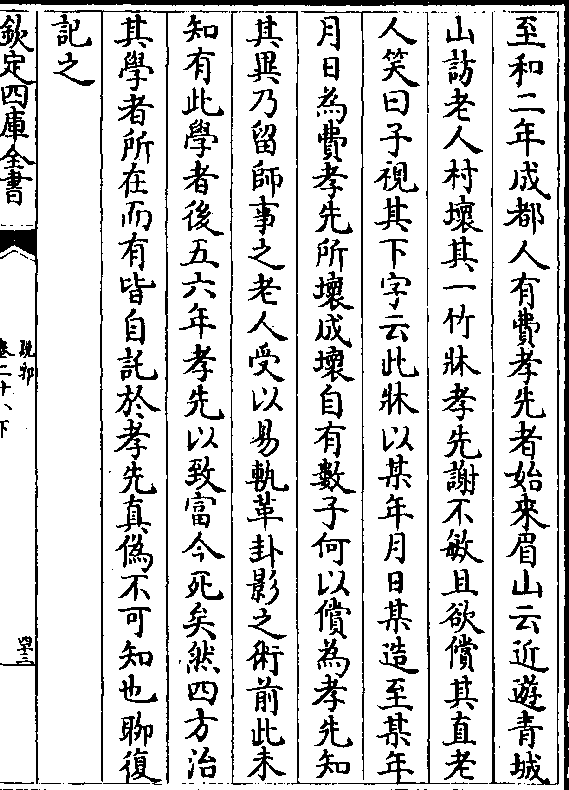 至和二年成都人有費孝先者始來眉山云近遊青城
山訪老人村壞其一竹牀孝先謝不敏且欲償其直老
人笑曰子視其下字云此牀以某年月日某造至某年
月日為費孝先所壞成壞自有數子何以償為孝先知
其異乃留師事之老人受以易軌革卦影之術前此未
知有此學者後五六年孝先以致富今死矣然四方治
其學者所在而有皆自託於孝先真偽不可知也聊復
記之
欽定四庫全書
說郛
卷二十八下
四十三